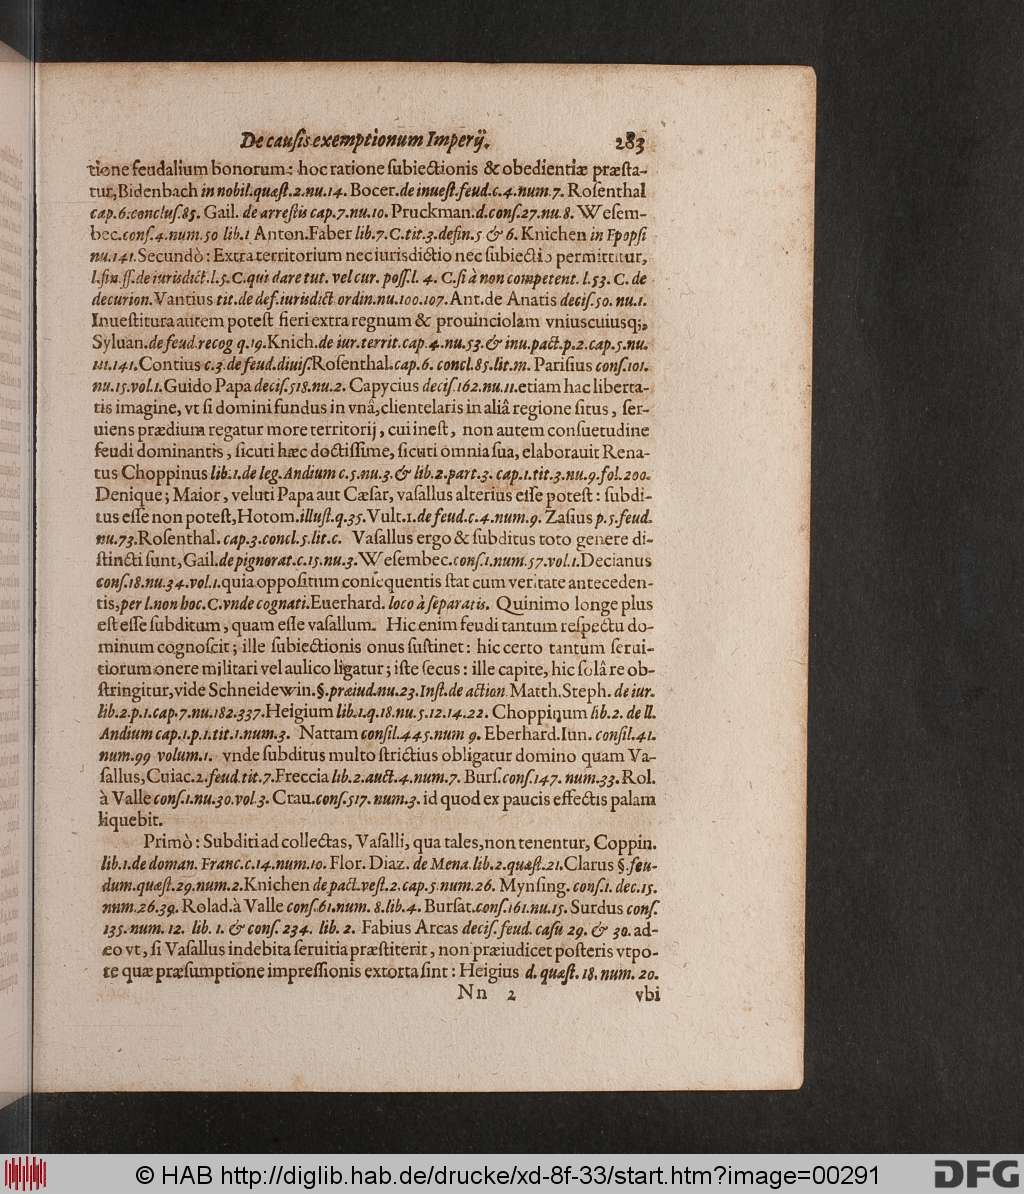 De causis exemptionum Imperij. 283
tione feudalium bonorum: hoc ratione subiectionis & obedientiæ præsta-
tur, Bidenbach in nobil. quæst. 2. nu. 14. Bocer. de inuest. feud. c. 4. num. 7. Rosenthal
cap. 6. conclus. 85. Gail. de arrestis cap. 7. nu. 10. Pruckman. d. cons. 27. nu. 8. Wesem-
bec. cons. 4. num. 50 lib. 1 Anton. Faber lib. 7. C. tit. 3. defin. 5 & 6. Knichen in Epopsi
nu. 141. Secundò: Extra territorium nec iurisdictio nec subiectio permittitur,
l. fin. ff. de iurisdict. l. 5. C. qui dare tut. vel cur. poss. l. 4. C. si à non competent. l. 53. C. de
decurion. Vantius tit. de def. iurisdict. ordin. nu. 100. 107. Ant. de Anatis decis. 50. nu. 1.
Inuestitura autem potest fieri extra regnum & prouinciolam vniuscuiusq;,
Syluan. de feud. recog q. 19. Knich. de iur. territ. cap. 4. nu. 53. & inu. pact. p. 2. cap. 5. nu.
141. Contius c. 3. de feud. diuis. Rosenthal. cap. 6. concl. 85. lit. m. Parisius cons. 101.
nu. 15. vol. 1. Guido Papa decis. 518. nu. 2. Capycius decis. 162. nu. 11. etiam hac liberta-
tis imagine, vt si domini fundus in vnâ, clientelaris in aliâ regione situs, ser-
uiens prædium regatur more territorij, cui inest, non autem consuetudine
feudi dominantis, sicuti hæc doctissime, sicuti omnia sua, elaborauit Rena-
tus Choppinus lib. 1. de leg. Andium c. 5. nu. 3. & lib. 2. part. 3. cap. 1. tit. 3. nu. 9. fol. 200.
Denique; Maior, veluti Papa aut Cæsar, vasallus alterius esse potest: subdi-
tus esse non potest, Hotom. illust. q. 35. Vult. 1. de feud. c. 4. num. 9. Zasius p. 5. feud.
nu. 73. Rosenthal. cap. 3. concl. 5. lit. c. Vasallus ergo & subditus toto genere di-
stincti sunt, Gail. de pignorat. c. 15. nu. 3. Wesembec. cons. 1. num. 57. vol. 1. Decianus
cons. 18. nu. 34. vol. 1. quia oppositum consequentis stat cum veritate anteceden-
tis, per l. non hoc. C. vnde cognati. Euerhard. loco à separatis. Quinimo longe plus
est esse subditum, quam esse vasallum. Hic enim feudi tantum respectu do-
minum cognoscit; ille subiectionis onus sustinet: hic certo tantum serui-
tiorum onere militari vel aulico ligatur; iste secus: ille capite, hic solâ re ob-
stringitur, vide Schneidewin. §. præiud. nu. 23. Inst. de action. Matth. Steph. de iur.
lib. 2. p. 1. cap. 7. nu. 182. 337. Heigium lib. 1. q. 18. nu. 5. 12. 14. 22. Choppinum lib. 2. de ll.
Andium cap. 1. p. 1. tit. 1. num. 3. Nattam consil. 445. num 9. Eberhard. Iun. consil. 41.
num. 99 volum. 1. vnde subditus multo strictius obligatur domino quam Va-
sallus, Cuiac. 2. feud. tit. 7. Freccia lib. 2. auct. 4. num. 7. Burs. cons. 147. num. 33. Rol.
à Valle cons. 1. nu. 30. vol. 3. Crau. cons. 517. num. 3. id quod ex paucis effectis palam
liquebit.
Primò: Subditi ad collectas, Vasalli, qua tales, non tenentur, Coppin.
lib. 1. de doman. Franc. c. 14. num. 10. Flor. Diaz. de Mena lib. 2. quæst. 21. Clarus §. feu-
dum. quæst. 29. num. 2. Knichen de pact. vest. 2. cap. 5. num. 26. Mynsing. cons. 1. dec. 15.
num. 26. 39. Rolad. à Valle cons. 61. num. 8. lib. 4. Bursat. cons. 161. nu. 15. Surdus cons.
135. num. 12. lib. 1. & cons. 234. lib. 2. Fabius Arcas decis. feud. casu 29. & 30. ad-
eo vt, si Vasallus indebita seruitia præstiterit, non præiudicet posteris vtpo-
te quæ præsumptione impressionis extorta sint: Heigius d. quæst. 18. num. 20.
Nn 2 vbi
© HAB http://diglib.hab.de/drucke/xd-8f-33/start.htm?image=00291 DFG